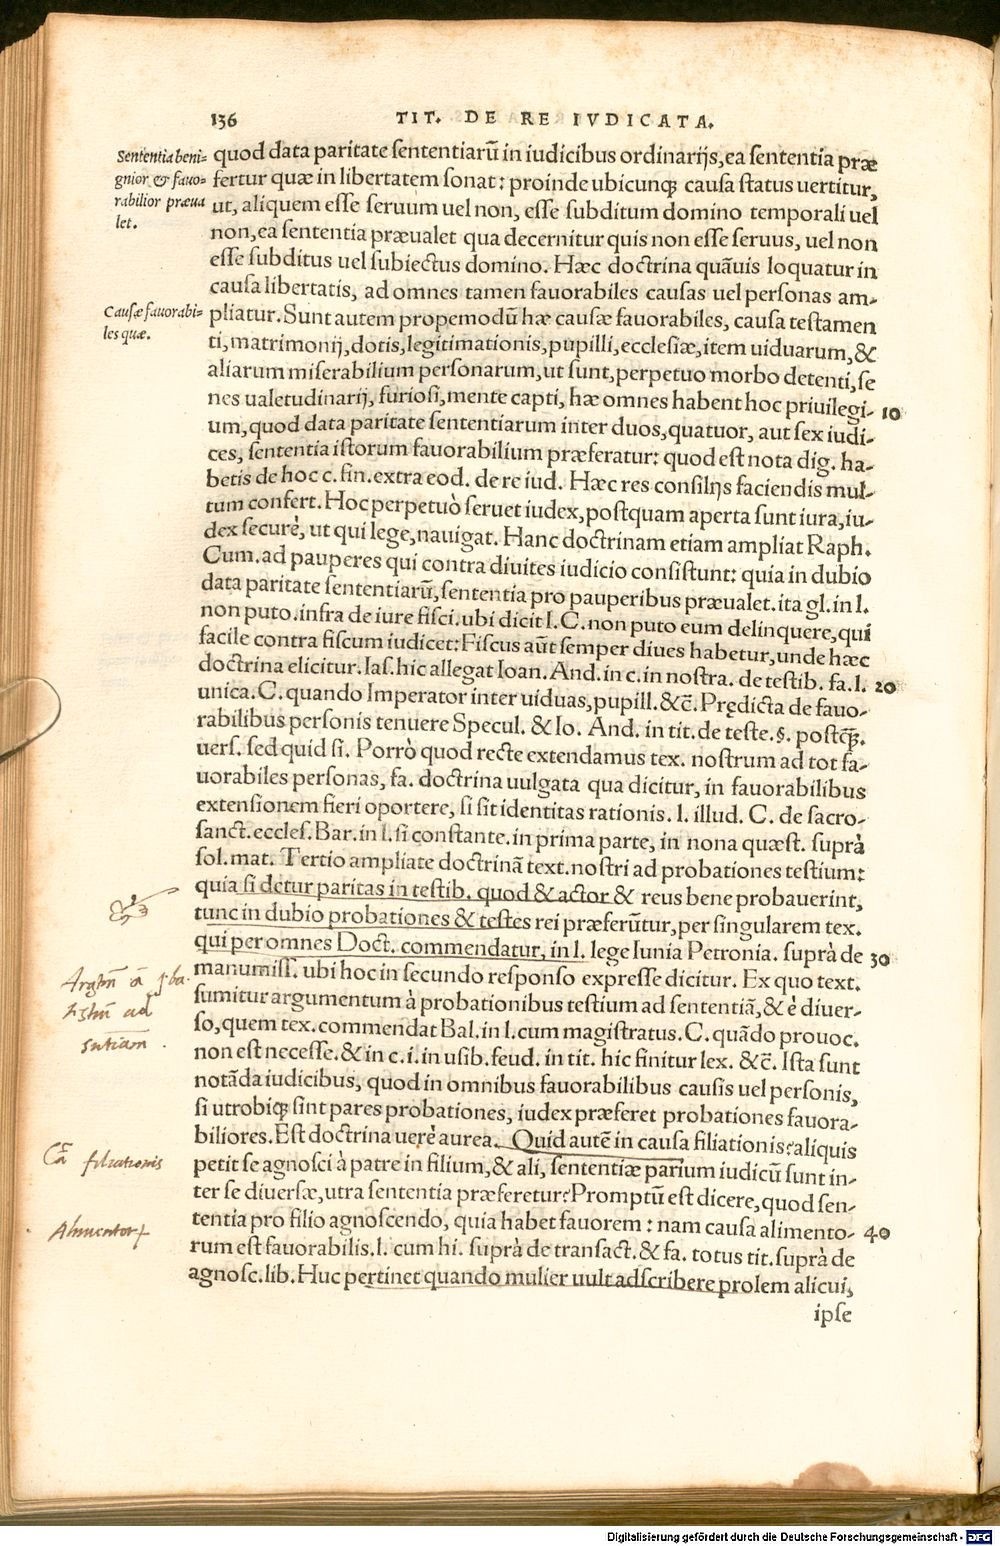 136 TIT. DE RE IVDICATA.
Sententia beni=
gnior & fauo=
rabilior præua
let.
quod data paritate sententiarū in iudicibus ordinarijs, ea sententia præ
fertur quæ in libertatem sonat: proinde ubicunq; causa status uertitur,
ut, aliquem esse seruum uel non, esse subditum domino temporali uel
non, ea sententia præualet qua decernitur quis non esse seruus, uel non
esse subditus uel subiectus domino. Hæc doctrina quāuis loquatur in
causa libertatis, ad omnes tamen fauorabiles causas uel personas am-
Causæ fauorabi=
les quæ.
pliatur. Sunt autem propemodū hæ causæ fauorabiles, causa testamen
ti, matrimonij, dotis, legitimationis, pupilli, ecclesiæ, item uiduarum, &
aliarum miserabilium personarum, ut sunt, perpetuo morbo detenti, se
nes ualetudinarij, furiosi, mente capti, hæ omnes habent hoc priuilegi- 10
um, quod data paritate sententiarum inter duos, quatuor, aut sex iudi-
ces, sententia istorum fauorabilium præferatur: quod est nota dig. ha-
betis de hoc c. fin. extra eod. de re iud. Hæc res consilijs faciendis mul-
tum confert. Hoc perpetuò seruet iudex, postquam aperta sunt iura, iu-
dex securè, ut qui lege, nauigat. Hanc doctrinam etiam ampliat Raph.
Cum. ad pauperes qui contra diuites iudicio consistunt: quia in dubio
data paritate sententiarū, sententia pro pauperibus præualet. ita gl. in l.
non puto. infra de iure fisci. ubi dicit I. C. non puto eum delinquere, qui
facile contra fiscum iudicet: Fiscus aūt semper diues habetur, unde hæc
doctrina elicitur. Ias. hic allegat Ioan. And. in c. in nostra. de testib. fa. l. 20
unica. C. quando Imperator inter uiduas, pupill. &c̄. Prędicta de fauo-
rabilibus personis tenuere Specul. & Io. And. in tit. de teste. §. postq̄;.
uers. sed quid si. Porrò quod recte extendamus tex. nostrum ad tot fa-
uorabiles personas, fa. doctrina uulgata qua dicitur, in fauorabilibus
extensionem fieri oportere, si sit identitas rationis. l. illud. C. de sacro-
sanct. eccles. Bar. in l. si constante. in prima parte, in nona quæst. suprà
sol. mat. Tertio ampliate doctrinā text. nostri ad probationes testium:
quia si detur paritas in testib. quod & actor & reus bene probauerint,
tunc in dubio probationes & testes rei præferūtur, per singularem tex.
qui per omnes Doct. commendatur, in l. lege Iunia Petronia. suprà de 30
manumiss. ubi hoc in secundo responso expresse dicitur. Ex quo text.
Argtm̄ à ꝓba
tistm̄ ad
sntiam.
sumitur argumentum à probationibus testium ad sententiā, & è diuer-
so, quem tex. commendat Bal. in l. cum magistratus. C. quādo prouoc.
non est necesse. & in c. i. in usib. feud. in tit. hic finitur lex. &c̄. Ista sunt
notāda iudicibus, quod in omnibus fauorabilibus causis uel personis,
si utrobiq; sint pares probationes, iudex præferet probationes fauora-
biliores. Est doctrina uerè aurea. Quid autē in causa filiationis? aliquis
Cā filiationis
petit se agnosci à patre in filium, & ali, sententiæ parium iudicū sunt in-
ter se diuersæ, utra sententia præferetur? Promptū est dicere, quod sen-
tentia pro filio agnoscendo, quia habet fauorem: nam causa alimento- 40
Alimentorꝝ
rum est fauorabilis. l. cum hi. suprà de transact. & fa. totus tit. suprà de
agnosc. lib. Huc pertinet quando mulier uult adscribere prolem alicui,
ipse
Digitalisierung gefördert durch die Deutsche Forschungsgemeinschaft - DFG